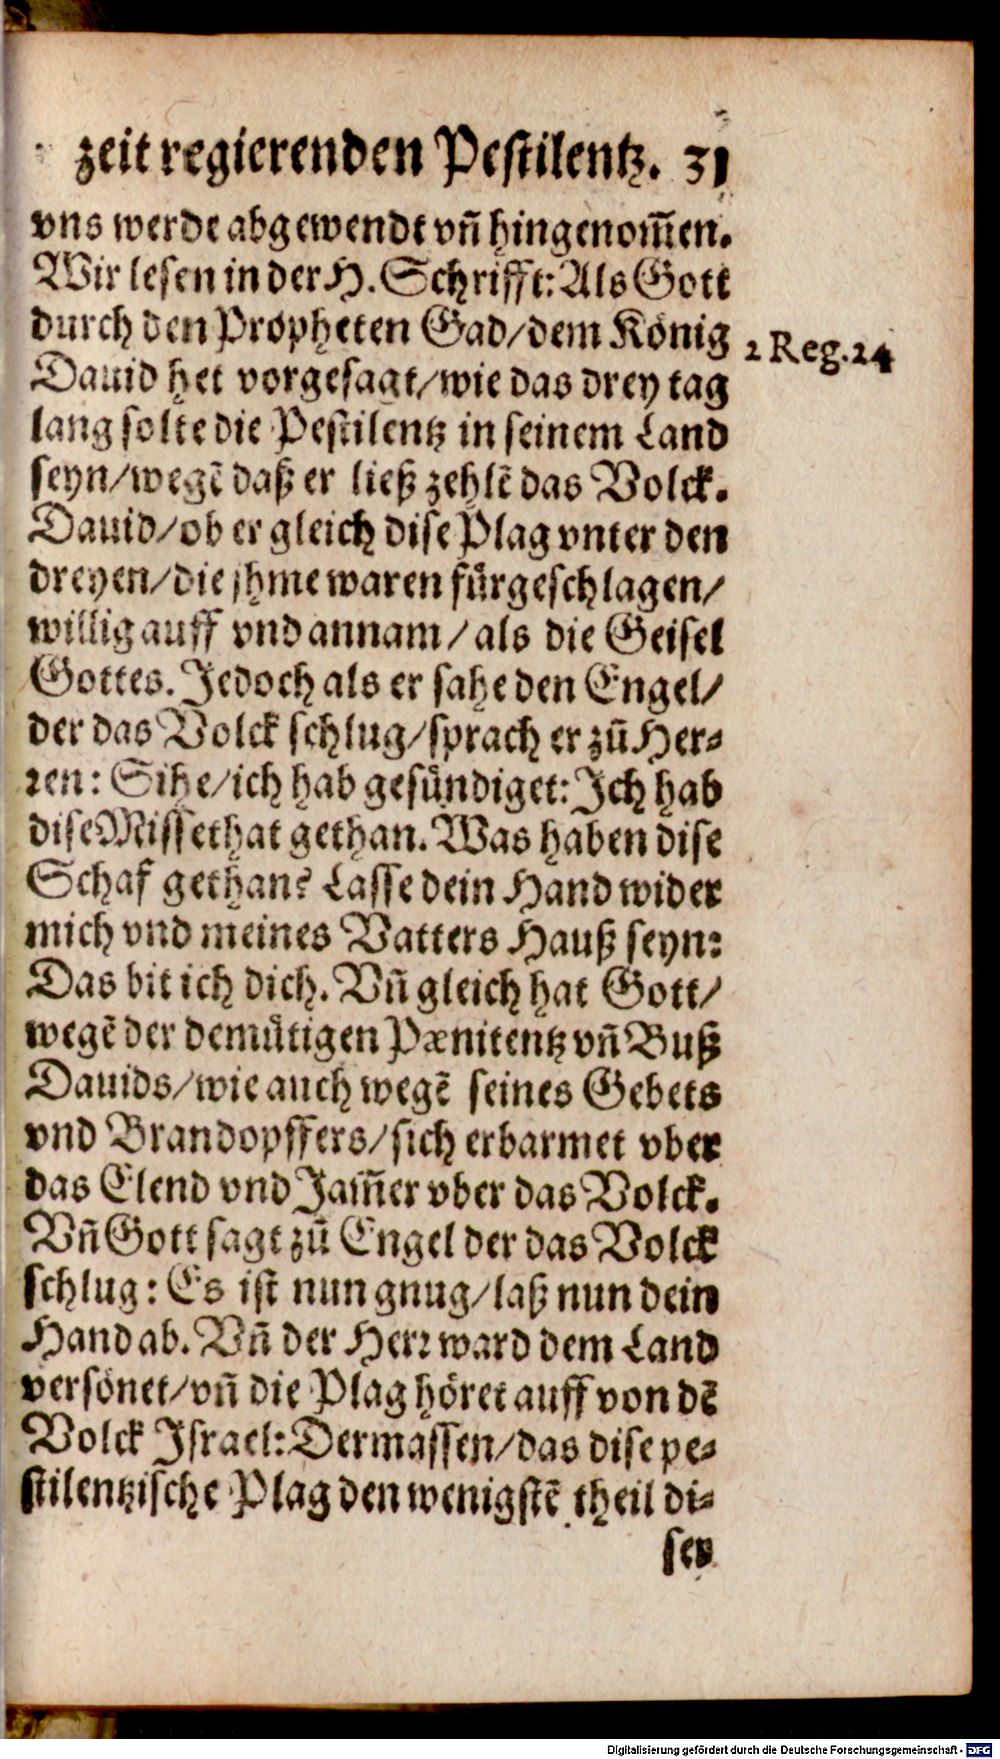 zeit regierenden Pestilentz. 31
vns werde abgewendt vñ hingenom̃en.
Wir lesen in der H. Schrifft: Als Gott
durch den Propheten Gad/dem König
2 Reg. 24
Dauid het vorgesagt/wie das drey tag
lang solte die Pestilentz in seinem Land
seyn/wegẽ daß er ließ zehlẽ das Volck.
Dauid/ob er gleich dise Plag vnter den
dreyen/die jhme waren fürgeschlagen/
willig auff vnd annam/als die Geisel
Gottes. Jedoch als er sahe den Engel/
der das Volck schlug/sprach er zũ Her-
ren: Sihe/ich hab gesündiget: Ich hab
dise Missethat gethan. Was haben dise
Schaf gethan? Lasse dein Hand wider
mich vnd meines Vatters Hauß seyn:
Das bit ich dich. Vñ gleich hat Gott/
wegẽ der demütigen Pænitentz vñ Buß
Dauids/wie auch wegẽ seines Gebets
vnd Brandopffers/sich erbarmet vber
das Elend vnd Jam̃er vber das Volck.
Vñ Gott sagt zũ Engel der das Volck
schlug: Es ist nun gnug/laß nun dein
Hand ab. Vñ der Herr ward dem Land
versönet/vñ die Plag höret auff von dẽ
Volck Israel: Dermassen/das dise pe-
stilentzische Plag den wenigstẽ theil di-
sen
Digitalisierung gefördert durch die Deutsche Forschungsgemeinschaft - DFG